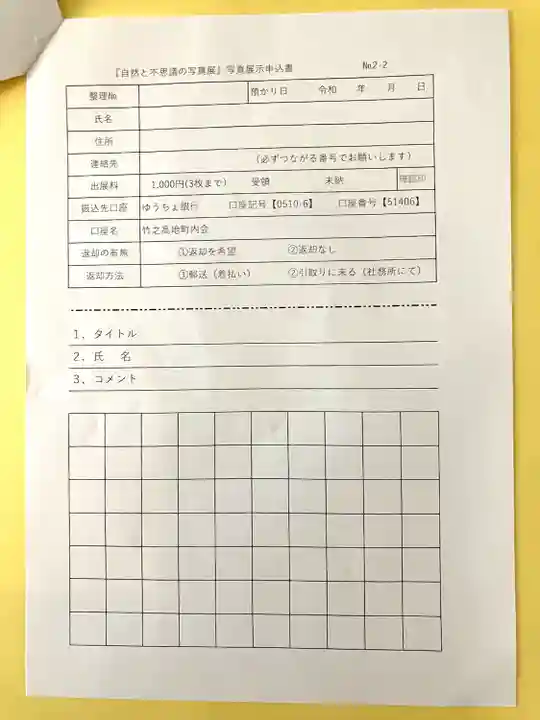 『自然と不思議の写真展』写真展示申込書 №2-2
整理№ 預かり日 令和 年 月 日
氏名
住所
連絡先 (必ずつながる番号でお願いします)
出展料 1,000円(3枚まで) 受領 未納 確認印
振込先口座 ゆうちょ銀行 口座記号【0510-6】 口座番号【51406】
口座名 竹之高地町内会
返却の有無 ①返却を希望 ②返却なし
返却方法 ①郵送（着払い） ②引取りに来る（社務所にて）
1、タイトル
2、氏 名
3、コメント